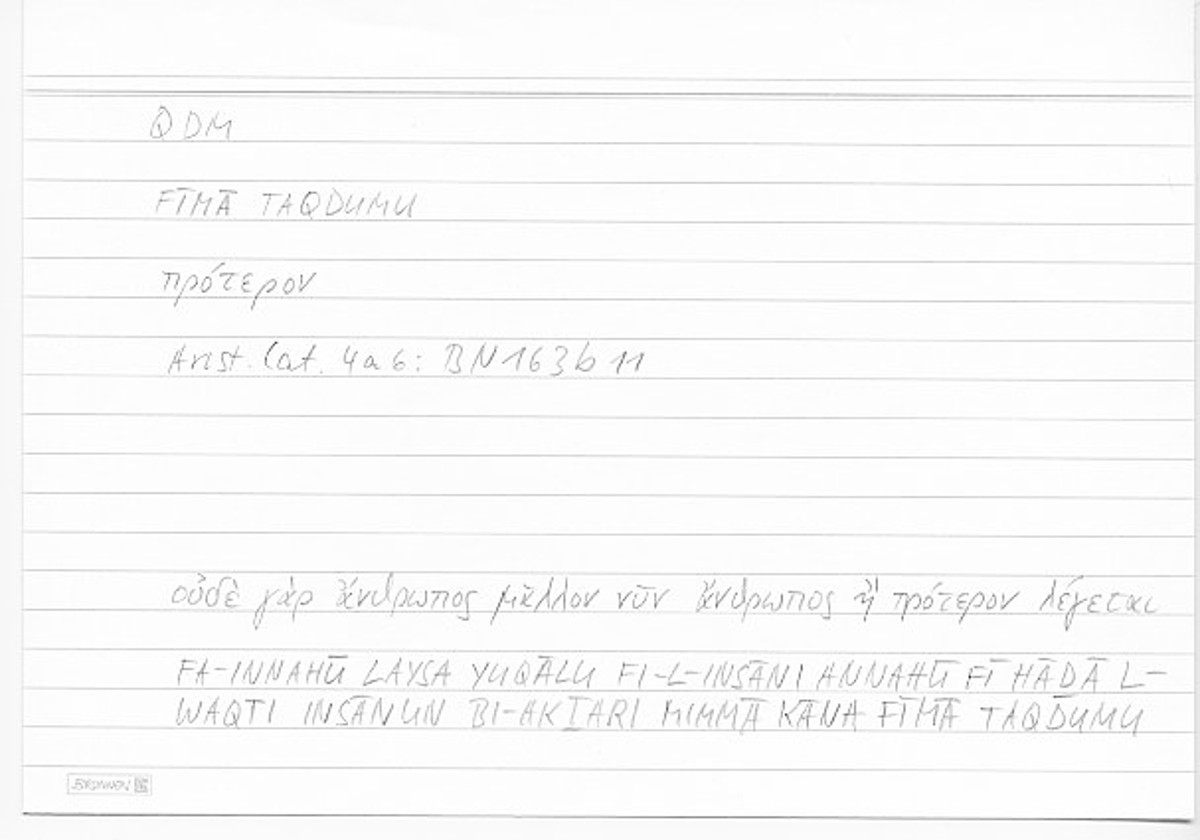 QDM
FĪMĀ TAQDUMU
πρότερον
Arist. Cat. 4a6: BN 163b11
οὐδὲ γὰρ ἄνθρωπος μᾶλλον νῦν ἄνθρωπος ἢ πρότερον λέγεται
FA-INNAHŪ LAYSA YUQĀLU FI-L-INSĀNI ANNAHŪ FĪ HĀḎĀ L-
WAQTI INSĀNUN BI-AKṮARI MIMMĀ KĀNA FĪMĀ TAQDUMU
BRUNNEN